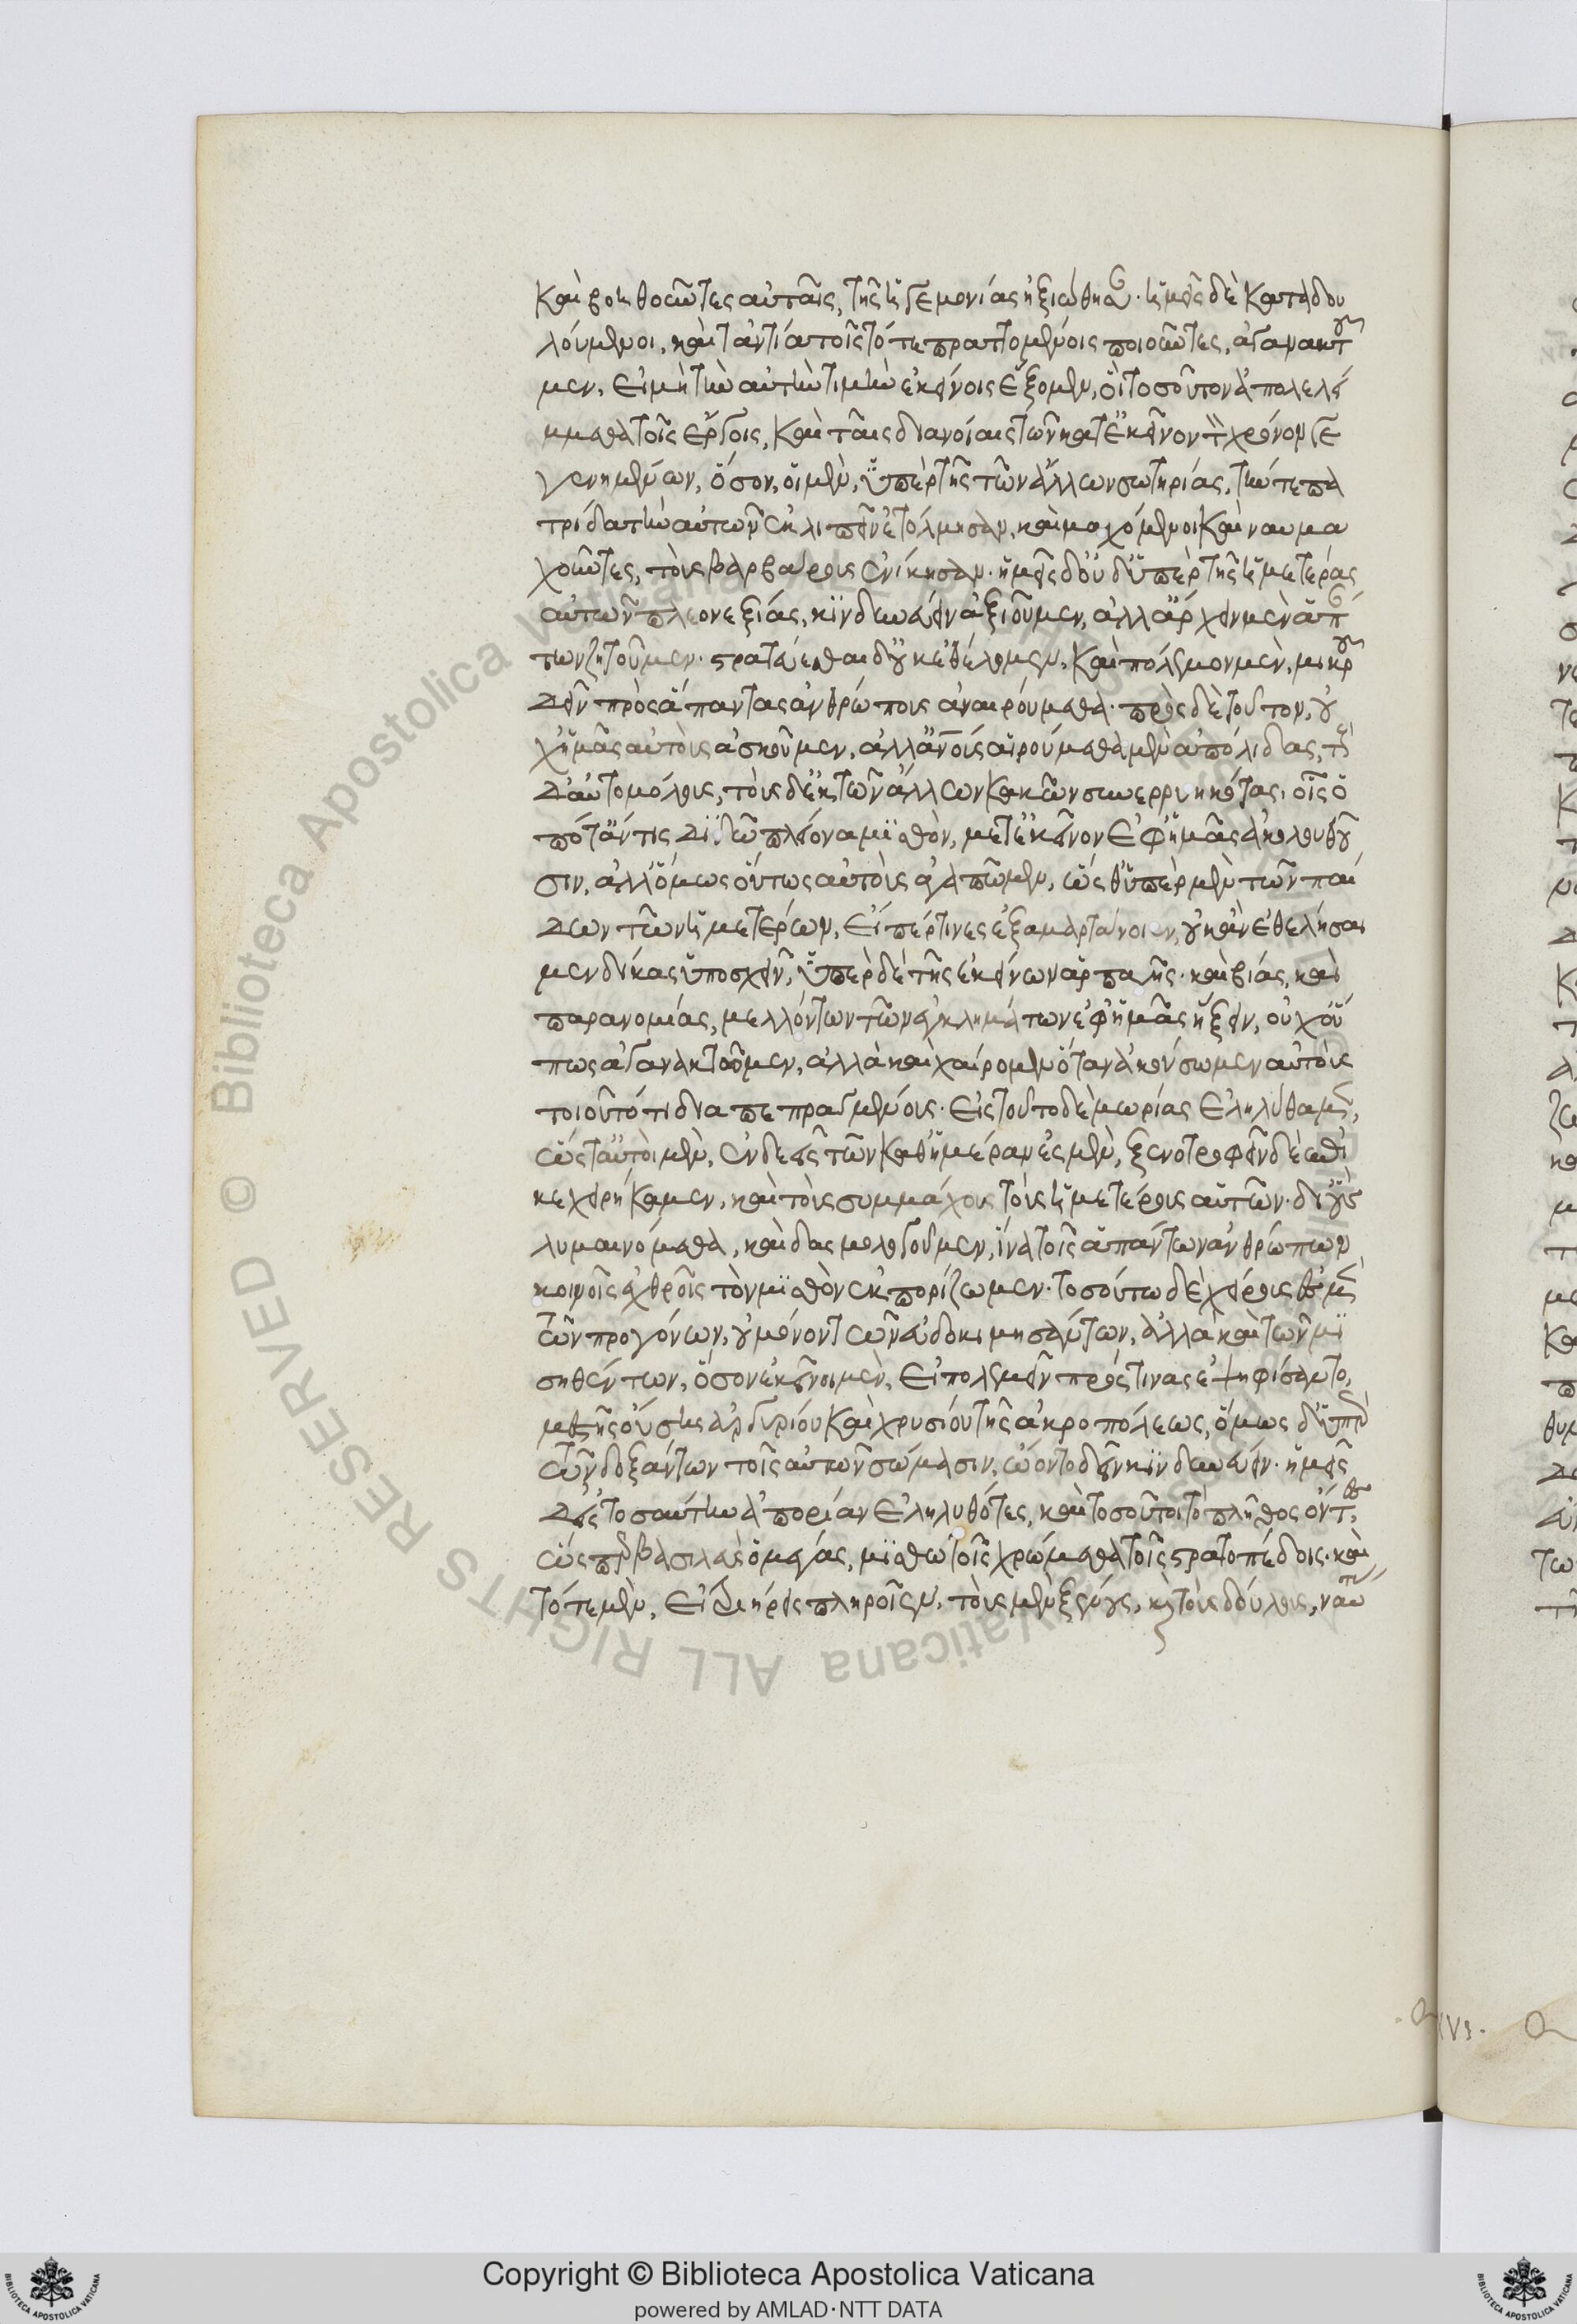 καὶ βοηθοῦντες αὐταῖς, τῆς ἡγεμονίας ἠξιώθησαν· ἡμεῖς δὲ καταδου
λούμενοι, καὶ τἀντία τοῖς τότε πραττομένοις ποιοῦντες, ἀγανακτοῦ
μεν, εἰ μὴ τὴν αὐτὴν τιμὴν ἐκείνοις ἕξομεν, οἳ τοσοῦτον ἀπολελεί
μμεθα τοῖς ἔργοις, καὶ ταῖς διανοίαις τῶν κατ' ἐκεῖνον τὸν χρόνον γε
γενημένων, ὅσον, οἱ μὲν, ὑπὲρ τῆς τῶν ἄλλων σωτηρίας, τήν τε πα
τρίδα τὴν αὑτῶν ἐκλιπεῖν ἐτόλμησαν, καὶ μαχόμενοι καὶ ναυμα
χοῦντες, τοὺς βαρβάρους ἐνίκησαν· ἡμεῖς δ' οὐδ' ὑπὲρ τῆς ἡμετέρας
αὐτῶν πλεονεξίας, κινδυνεύειν ἀξιοῦμεν, ἀλλ' ἄρχειν μὲν ἁπάν
των ζητοῦμεν· στρατεύεσθαι δ' οὐκ ἐθέλομεν, καὶ πόλεμον μὲν, μικροῦ
δεῖν πρὸς ἅπαντας ἀνθρώπους ἀναιρούμεθα· πρὸς δὲ τοῦτον, οὐ
χ' ἡμᾶς αὐτοὺς ἀσκοῦμεν, ἀλλ' ἀνοῖς αἱρούμεθα μὲν ἀπόλιδας, τοὺς
δ' αὐτομόλους, τοὺς δ' ἐκ τῶν ἄλλων κακῶν συνερρυηκότας, οἷς ὁ
πόταν τις διδῶ πλείονα μισθὸν, μετ' ἐκεῖνον ἐφ' ἡμᾶς ἀκολουθοῦ
σιν, ἀλλ' ὅμως οὕτως αὐτοὺς ἀγαπῶμεν, ὥσθ' ὑπὲρ μὲν τῶν παί
δων τῶν ἡμετέρων, εἰ πέρ τινες ἐξαμαρτάνοιεν, οὐκ ἂν ἐθελήσαι
μεν δίκας ὑποσχεῖν, ὑπὲρ δὲ τῆς ἐκείνων ἁρπαγῆς· καὶ βίας, καὶ
παρανομίας, μελλόντων τῶν ἐγκλημάτων ἐφ' ἡμᾶς ἥξειν, οὐχ ὅ
πως ἀγανακτοῦμεν, ἀλλὰ καὶ χαίρομεν ὅταν ἀκούσωμεν αὐτοὺς
τοιοῦτό τι διαπεπραγμένους· εἰς τοῦτο δὲ μωρίας ἐληλύθαμεν,
ὥστ' αὐτοὶ μὲν, ἐνδεεῖς τῶν καθ' ἡμέραν ἐσμὲν, ξενοτροφεῖν δὲ ἐπι
κεχειρήκαμεν, καὶ τοὺς συμμάχους τοὺς ἡμετέρους αὐτῶν· ἰδίους
λυμαινόμεθα, καὶ δασμολογοῦμεν, ἵνα τοῖς ἁπάντων ἀνθρώπων
κοινοῖς ἐχθροῖς τὸν μισθὸν ἐκπορίζωμεν· τοσούτω δὲ χείρους ἐσμὲν
τῶν προγόνων, οὐ μόνον τῶν εὐδοκιμησάντων, ἀλλὰ καὶ τῶν μι
σηθέντων, ὅσον ἐκεῖνοι μὲν, εἰ πολεμεῖν πρός τινας ἐψηφίσαντο,
μεστῆς οὔσης ἀργυρίου καὶ χρυσίου τῆς ἀκροπόλεως, ὅμως δ' ὑπὲρ
τῶν δοξάντων τοῖς αὑτῶν σώμασιν, ᾤοντο δεῖν κινδυνεύειν· ἡμεῖς
δ' εἰς τοσαύτην ἀπορίαν ἐληλυθότες, καὶ τοσοῦτοι τὸ πλῆθος ὄντες,
ὥσπερ βασιλεὺς ὁ μέγας, μισθωτοῖς χρώμεθα τοῖς στρατοπέδοις· καὶ
τότε μὲν, εἰ τριήρεις πληροῖεν, τοὺς μὲν ξένους, καὶ τοὺς δούλους, ναύ
© Biblioteca Apostolica Vaticana ALL RIGHTS RESERVED
Copyright © Biblioteca Apostolica Vaticana
powered by AMLAD·NTT DATA